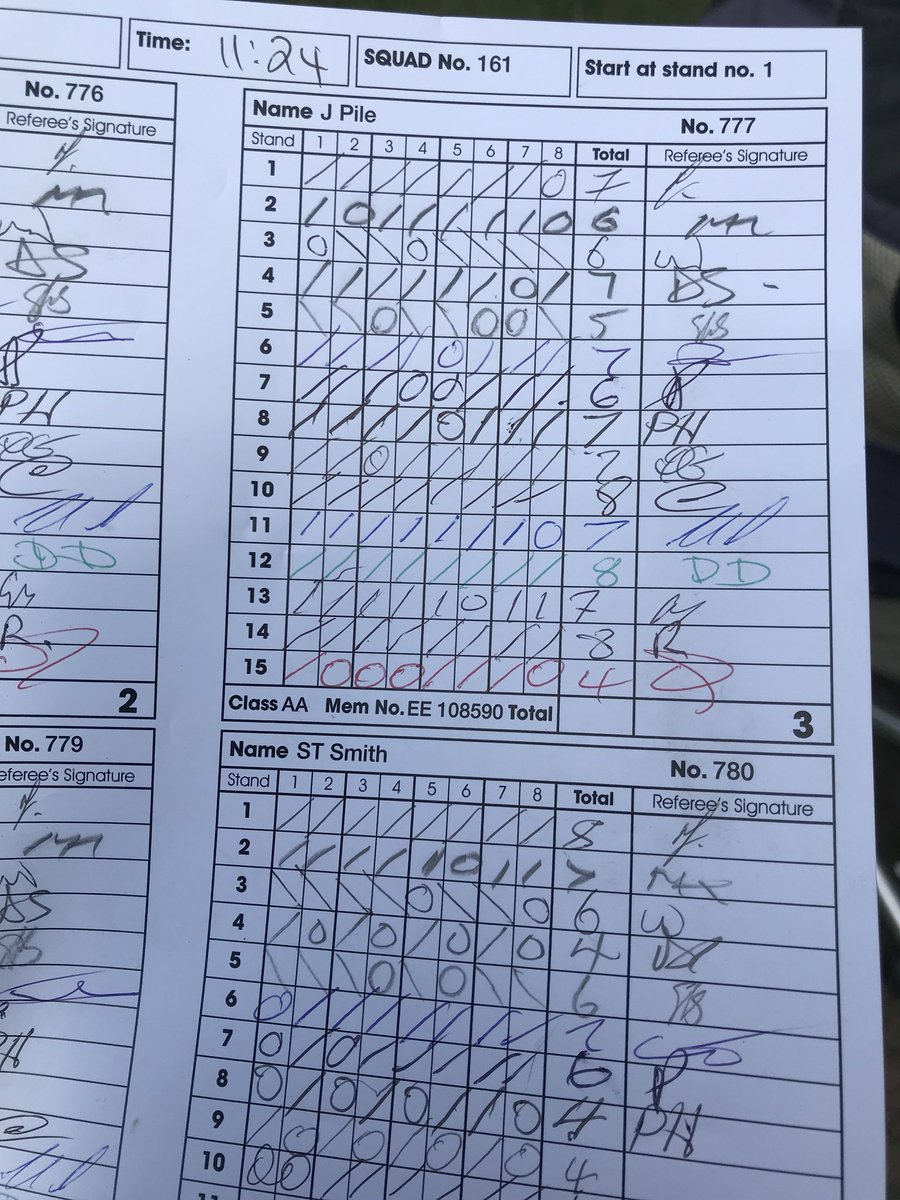 Time: 11:24 SQUAD No. 161 Start at stand no. 1
No. 776
Referee's Signature
DS
PH
DD
R.
2
Name J Pile No. 777
Stand 1 2 3 4 5 6 7 8 Total Referee's Signature
1 / / / / / / / 0 7
2 / 0 / / / / / 0 6
3 0 \ \ 0 \ \ \ \ 6 W
4 / / / / / / 0 / 7 DS -
5 \ \ 0 \ \ 0 0 \ 5
6 / / / / 0 / / / 7
7 / / / 0 0 / / / 6
8 / / / / 0 / / / 7 PH
9 / / 0 / / / / / 7
10 / / / / / / / / 8
11 / / / / / / / 0 7
12 / / / / / / / / 8 DD
13 / / / / 1 0 1 1 7
14 / / / / / / / / 8 R
15 / 0 0 0 / / / 0 4
Class AA Mem No. EE 108590 Total 3
No. 779
eferee's Signature
DS
Name ST Smith No. 780
Stand 1 2 3 4 5 6 7 8 Total Referee's Signature
1 / / / / / / / / 8
2 / / / / / 0 / / 7
3 \ \ \ \ 0 \ \ 0 6 W
4 / 0 / 0 / 0 / 0 4
5 \ \ \ 0 \ 0 \ \ 6
6 0 / / / / / / / 7
7 0 / 0 / / / / / 6 P
8 0 / 0 / 0 / / 0 4 PH
9 / 0 / 0 / 0 / 0 4
10 0 0 / / / / / /